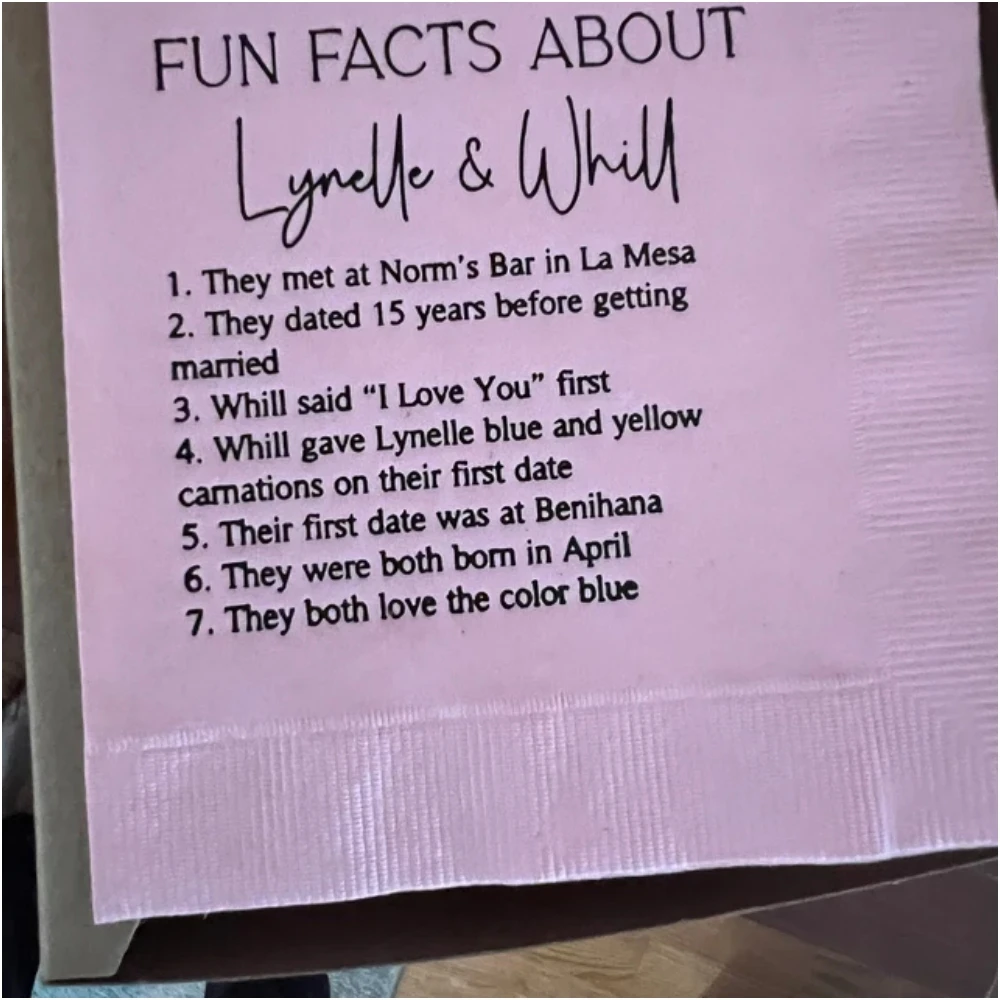 FUN FACTS ABOUT
Lynelle & Whill
1. They met at Norm's Bar in La Mesa
2. They dated 15 years before getting
married
3. Whill said “I Love You” first
4. Whill gave Lynelle blue and yellow
carnations on their first date
5. Their first date was at Benihana
6. They were both born in April
7. They both love the color blue